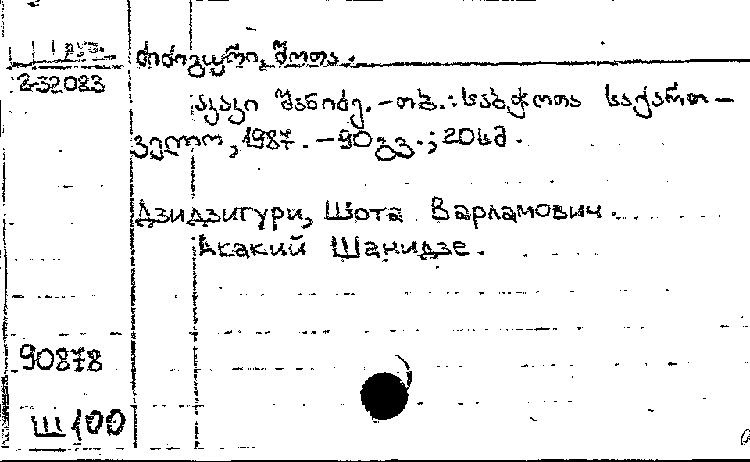 ძიძიგური, შოთა.
2-32083
აკაკი შანიძე. – თბ.: საბჭოთა საქართ-
ველო, 1987. – 90 გვ.; 20 სმ.
Дзидзигури, Шота Варламович.
Акакий Шанидзе.
90878
Ш 100